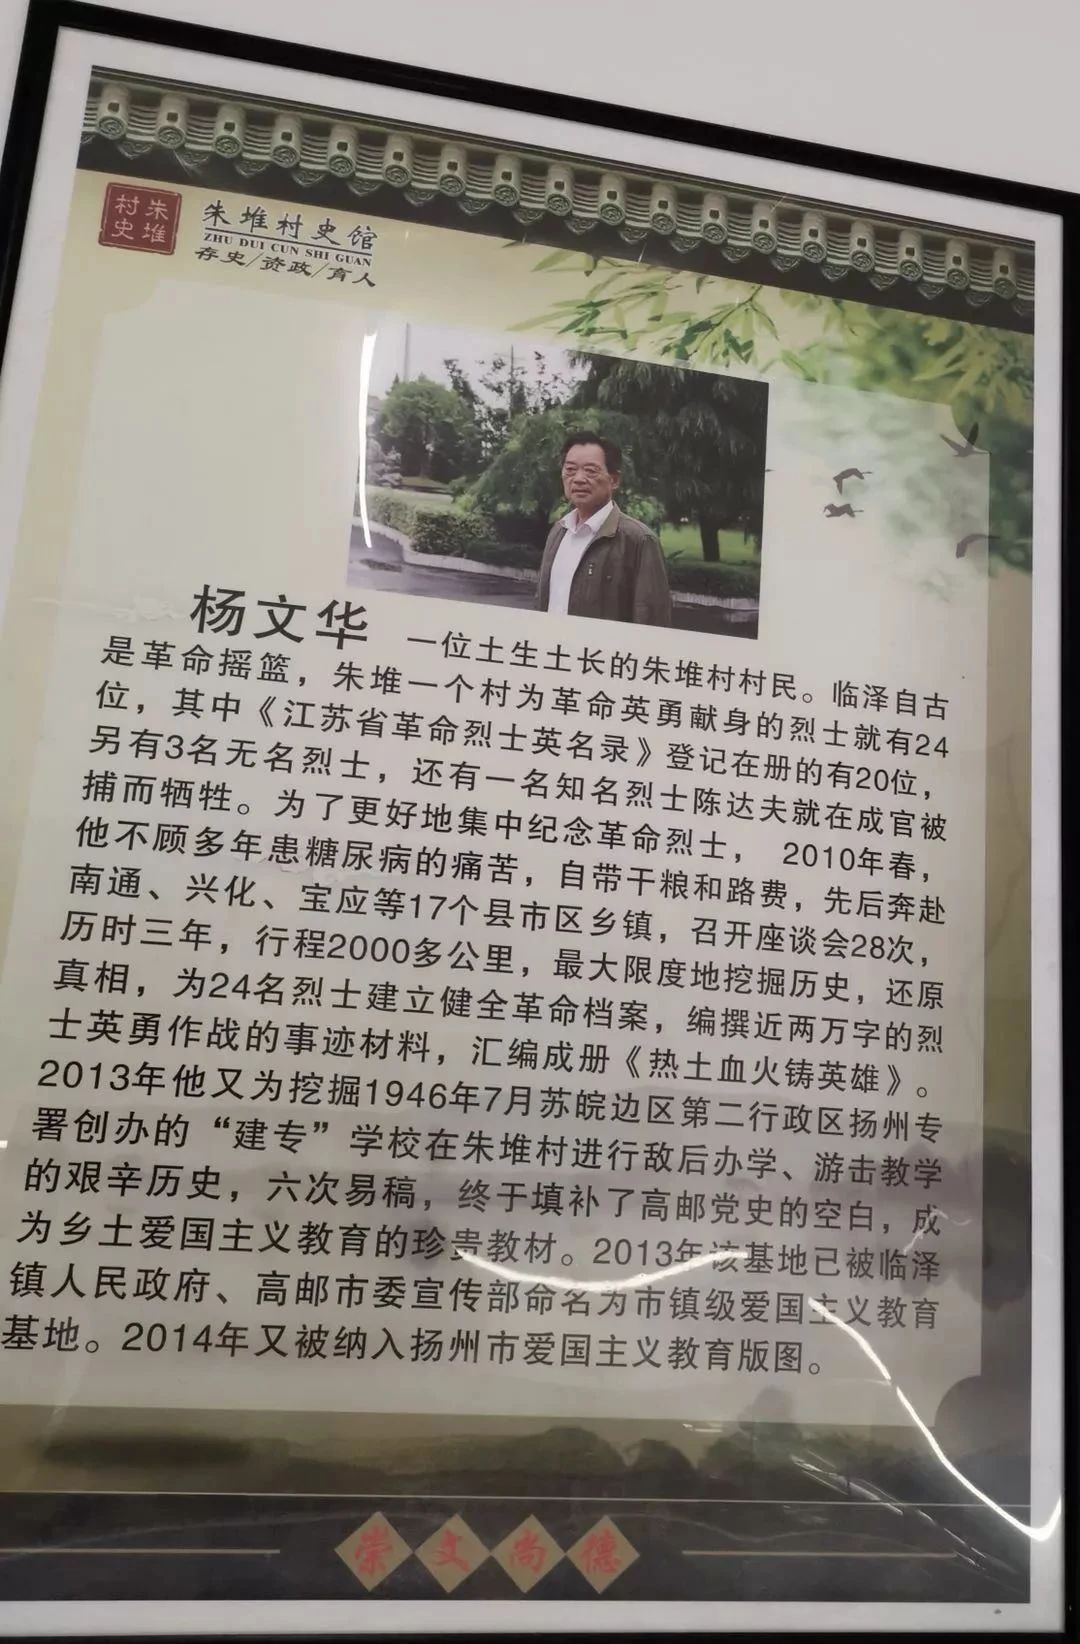 朱堆
村史
朱堆村史馆
ZHU DUI CUN SHI GUAN
存史/资政/育人
杨文华 一位土生土长的朱堆村村民。临泽自古
是革命摇篮，朱堆一个村为革命英勇献身的烈士就有24
位，其中《江苏省革命烈士英名录》登记在册的有20位，
另有3名无名烈士，还有一名知名烈士陈达夫就在成官被
捕而牺牲。为了更好地集中纪念革命烈士， 2010年春，
他不顾多年患糖尿病的痛苦，自带干粮和路费，先后奔赴
南通、兴化、宝应等17个县市区乡镇，召开座谈会28次，
历时三年，行程2000多公里，最大限度地挖掘历史，还原
真相，为24名烈士建立健全革命档案，编撰近两万字的烈
士英勇作战的事迹材料，汇编成册《热土血火铸英雄》。
2013年他又为挖掘1946年7月苏皖边区第二行政区扬州专
署创办的“建专”学校在朱堆村进行敌后办学、游击教学
的艰辛历史，六次易稿，终于填补了高邮党史的空白，成
为乡土爱国主义教育的珍贵教材。2013年该基地已被临泽
镇人民政府、高邮市委宣传部命名为市镇级爱国主义教育
基地。2014年又被纳入扬州市爱国主义教育版图。
崇文尚德